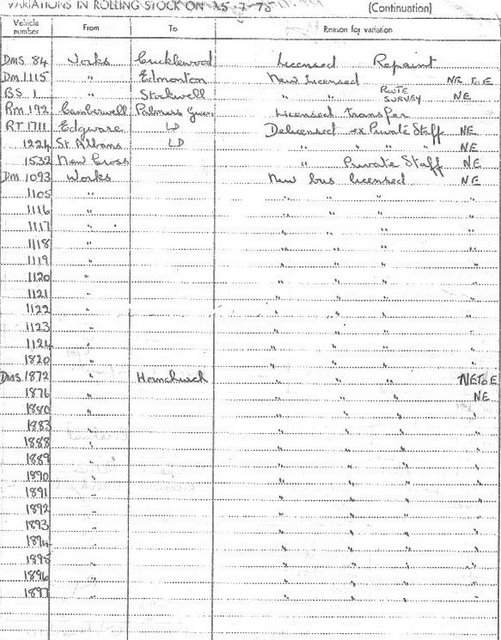 VARIATIONS IN ROLLING STOCK ON 15-7-75 (Continuation)
Vehicle number From To Reason for variation
DMS. 84 Works Cricklewood Licensed Repaint
DM. 1115 " Edmonton New Licensed NE to E
BS. 1 " Stockwell ROUTE SURVEY NE
RM. 192 Camberwell Palmers Green Licensed transfer
RT. 1711 Edgware LD Delicensed ex Private Staff NE
1224 St Albans LD " " " NE
1532 New Cross " Private Staff NE
DM. 1093 Works New bus licensed NE
1105 " " " " "
1116 " " " " "
1117 " " " " "
1118 " " " " "
1119 " " " " "
1120 " " " " "
1121 " " " " "
1122 " " " " "
1123 " " " " "
1124 " " " " "
1820 " " " " "
DMS. 1872 " Hornchurch " " " NE to E
1876 " " " " NE
1880 " " " " "
1883 " " " " "
1888 " " " " "
1889 " " " " "
1890 " " " " "
1891 " " " " "
1892 " " " " "
1893 " " " " "
1894 " " " " "
1895 " " " " "
1896 " " " " "
1897 " " " " "